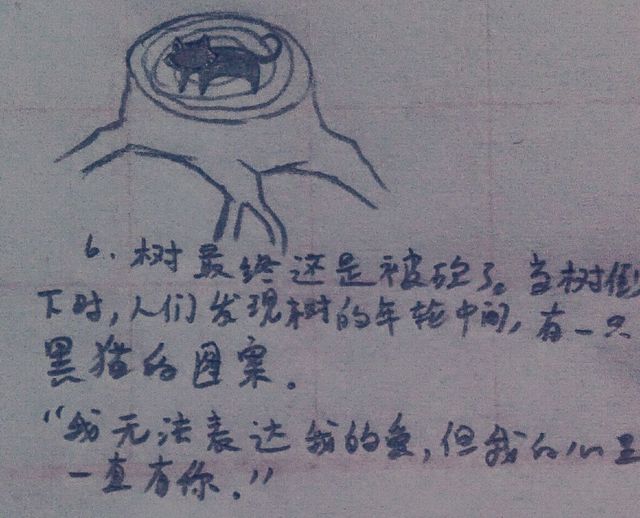 6. 树最终还是被砍了。当树倒
下时,人们发现树的年轮中间,有一只
黑猫的图案.
"我无法表达我的爱,但我的心里
一直有你."